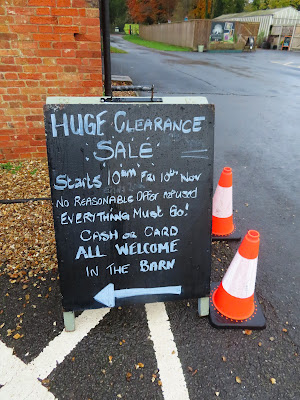 HUGE CLEARANCE
SALE
Starts 10am Fri 10th Nov
No REASONABLE OFFER REFUSED
EVERYTHING MUST GO!
CASH OR CARD
ALL WELCOME
IN THE BARN